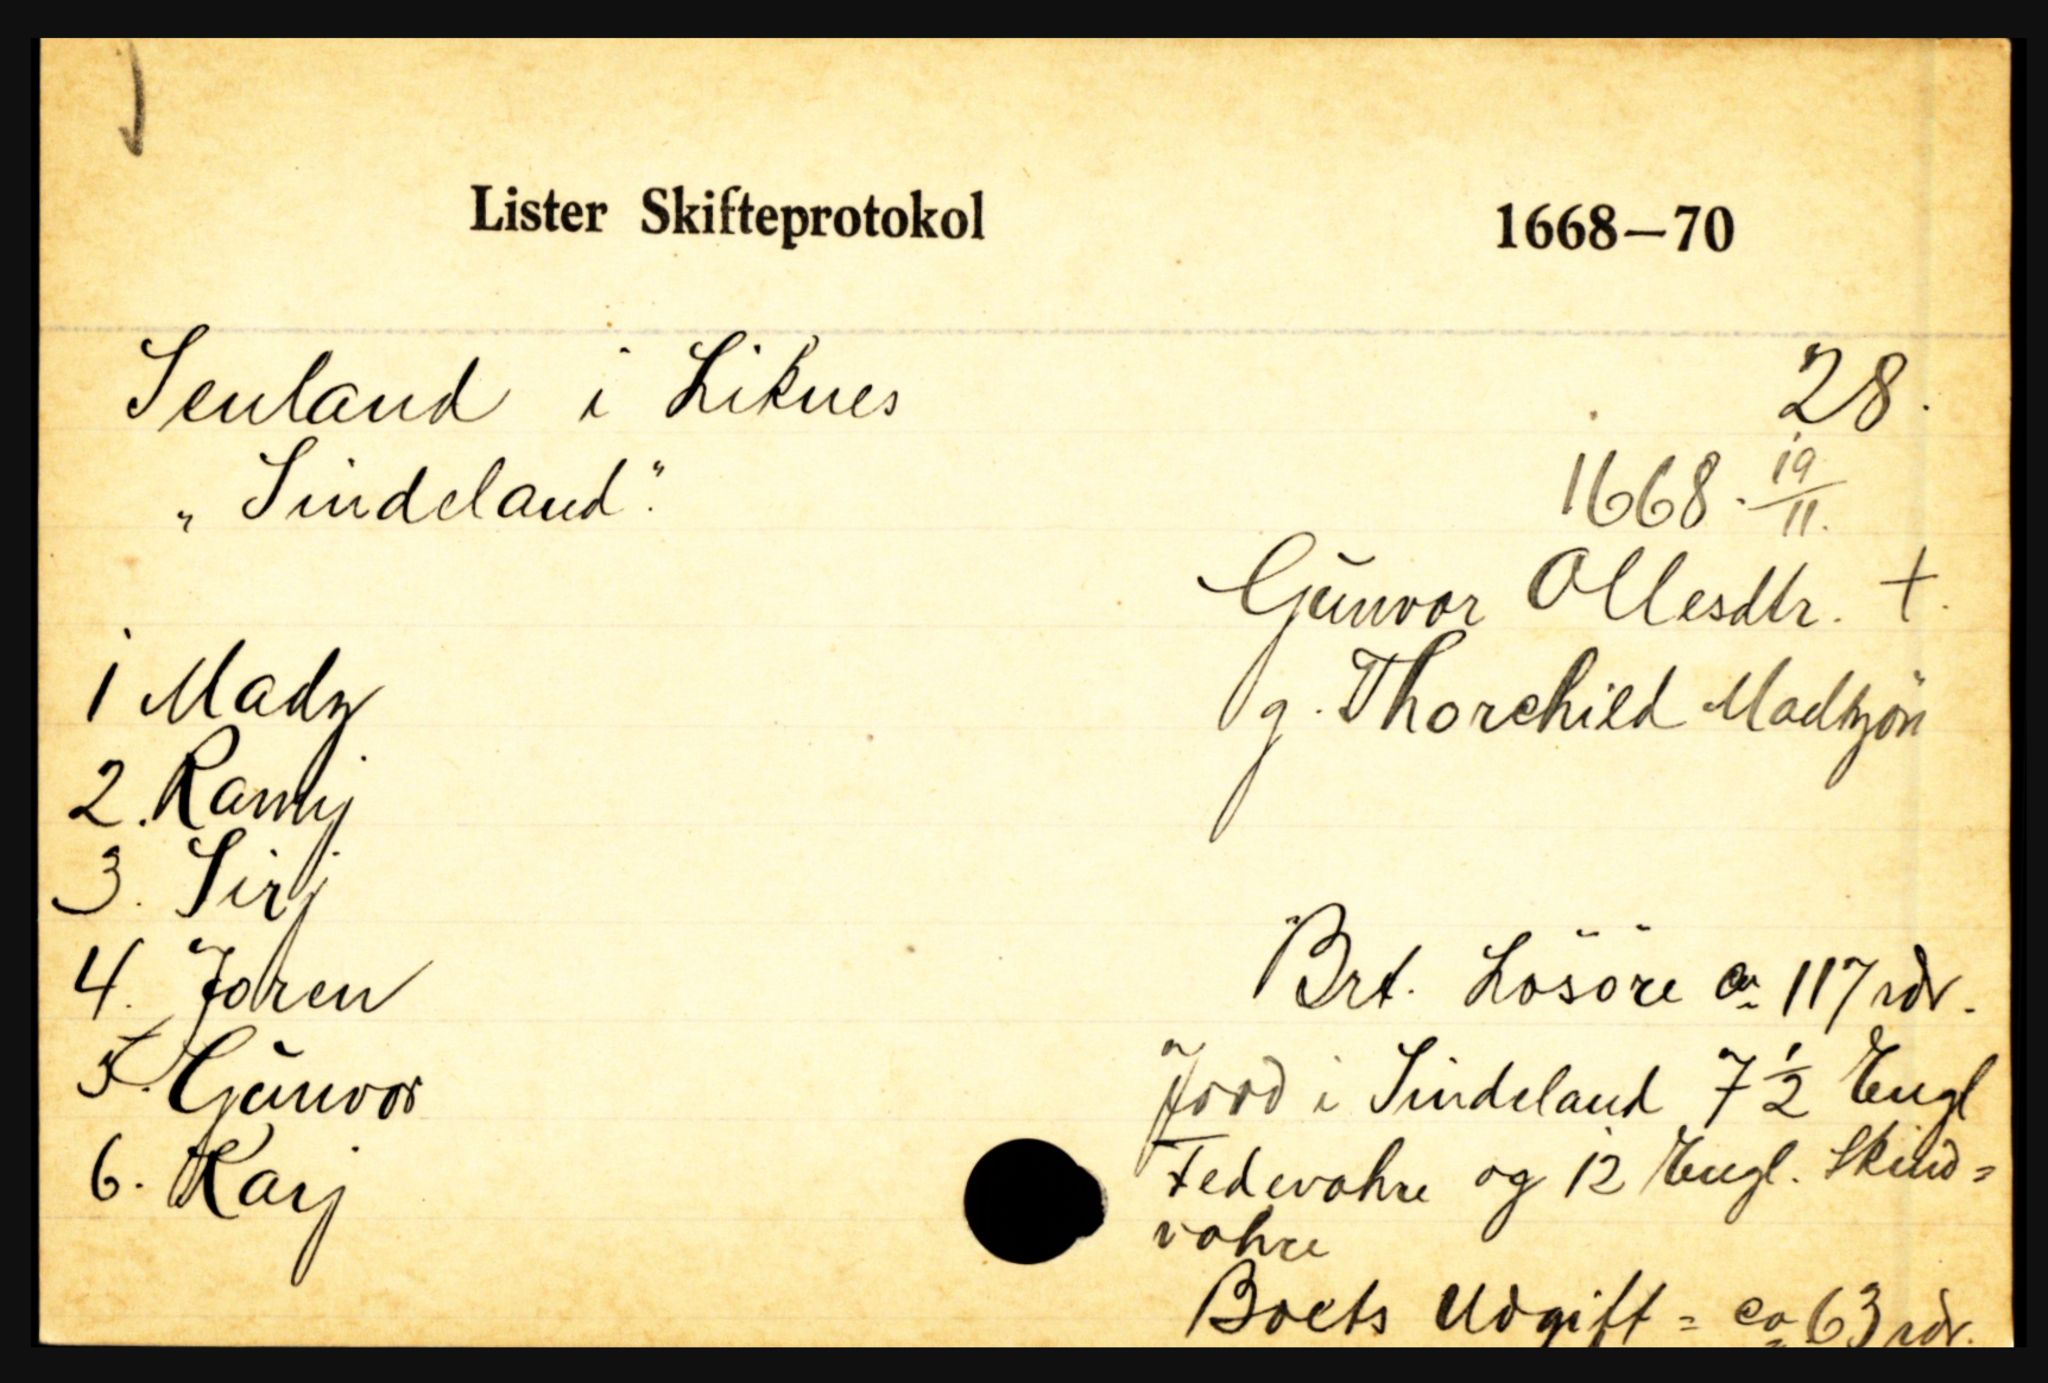 Lister Skifteprotokol 1668—70
Senland i Liknes 28.
„Sindeland".
1668 · 19/11.
Gunvor Ollesdtr. †.
g. Thorchild Madtzön
1 Madz
2. Ramij
3. Sirj
4. Joren
5. Gunvor
6. Karj
Brt. Lösöre ca 117 rdr.
Jord i Sindeland 7 1/2 Engl
Fedevahre og 12 Engl. Skind=
vahre
Boets Udgift = ca 63 rdr.